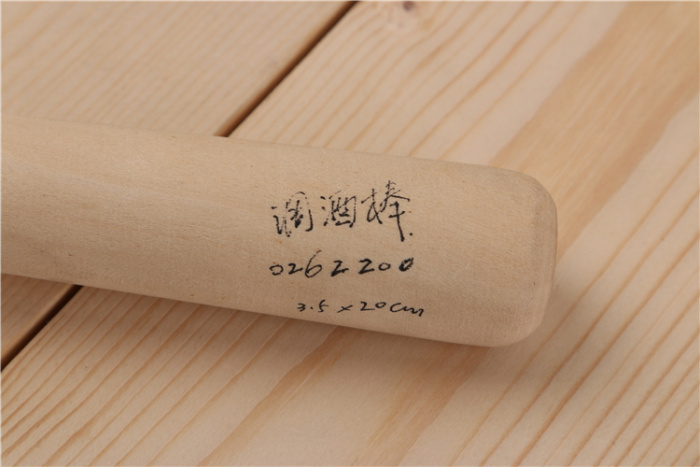 调酒棒
0262200
3.5×20cm